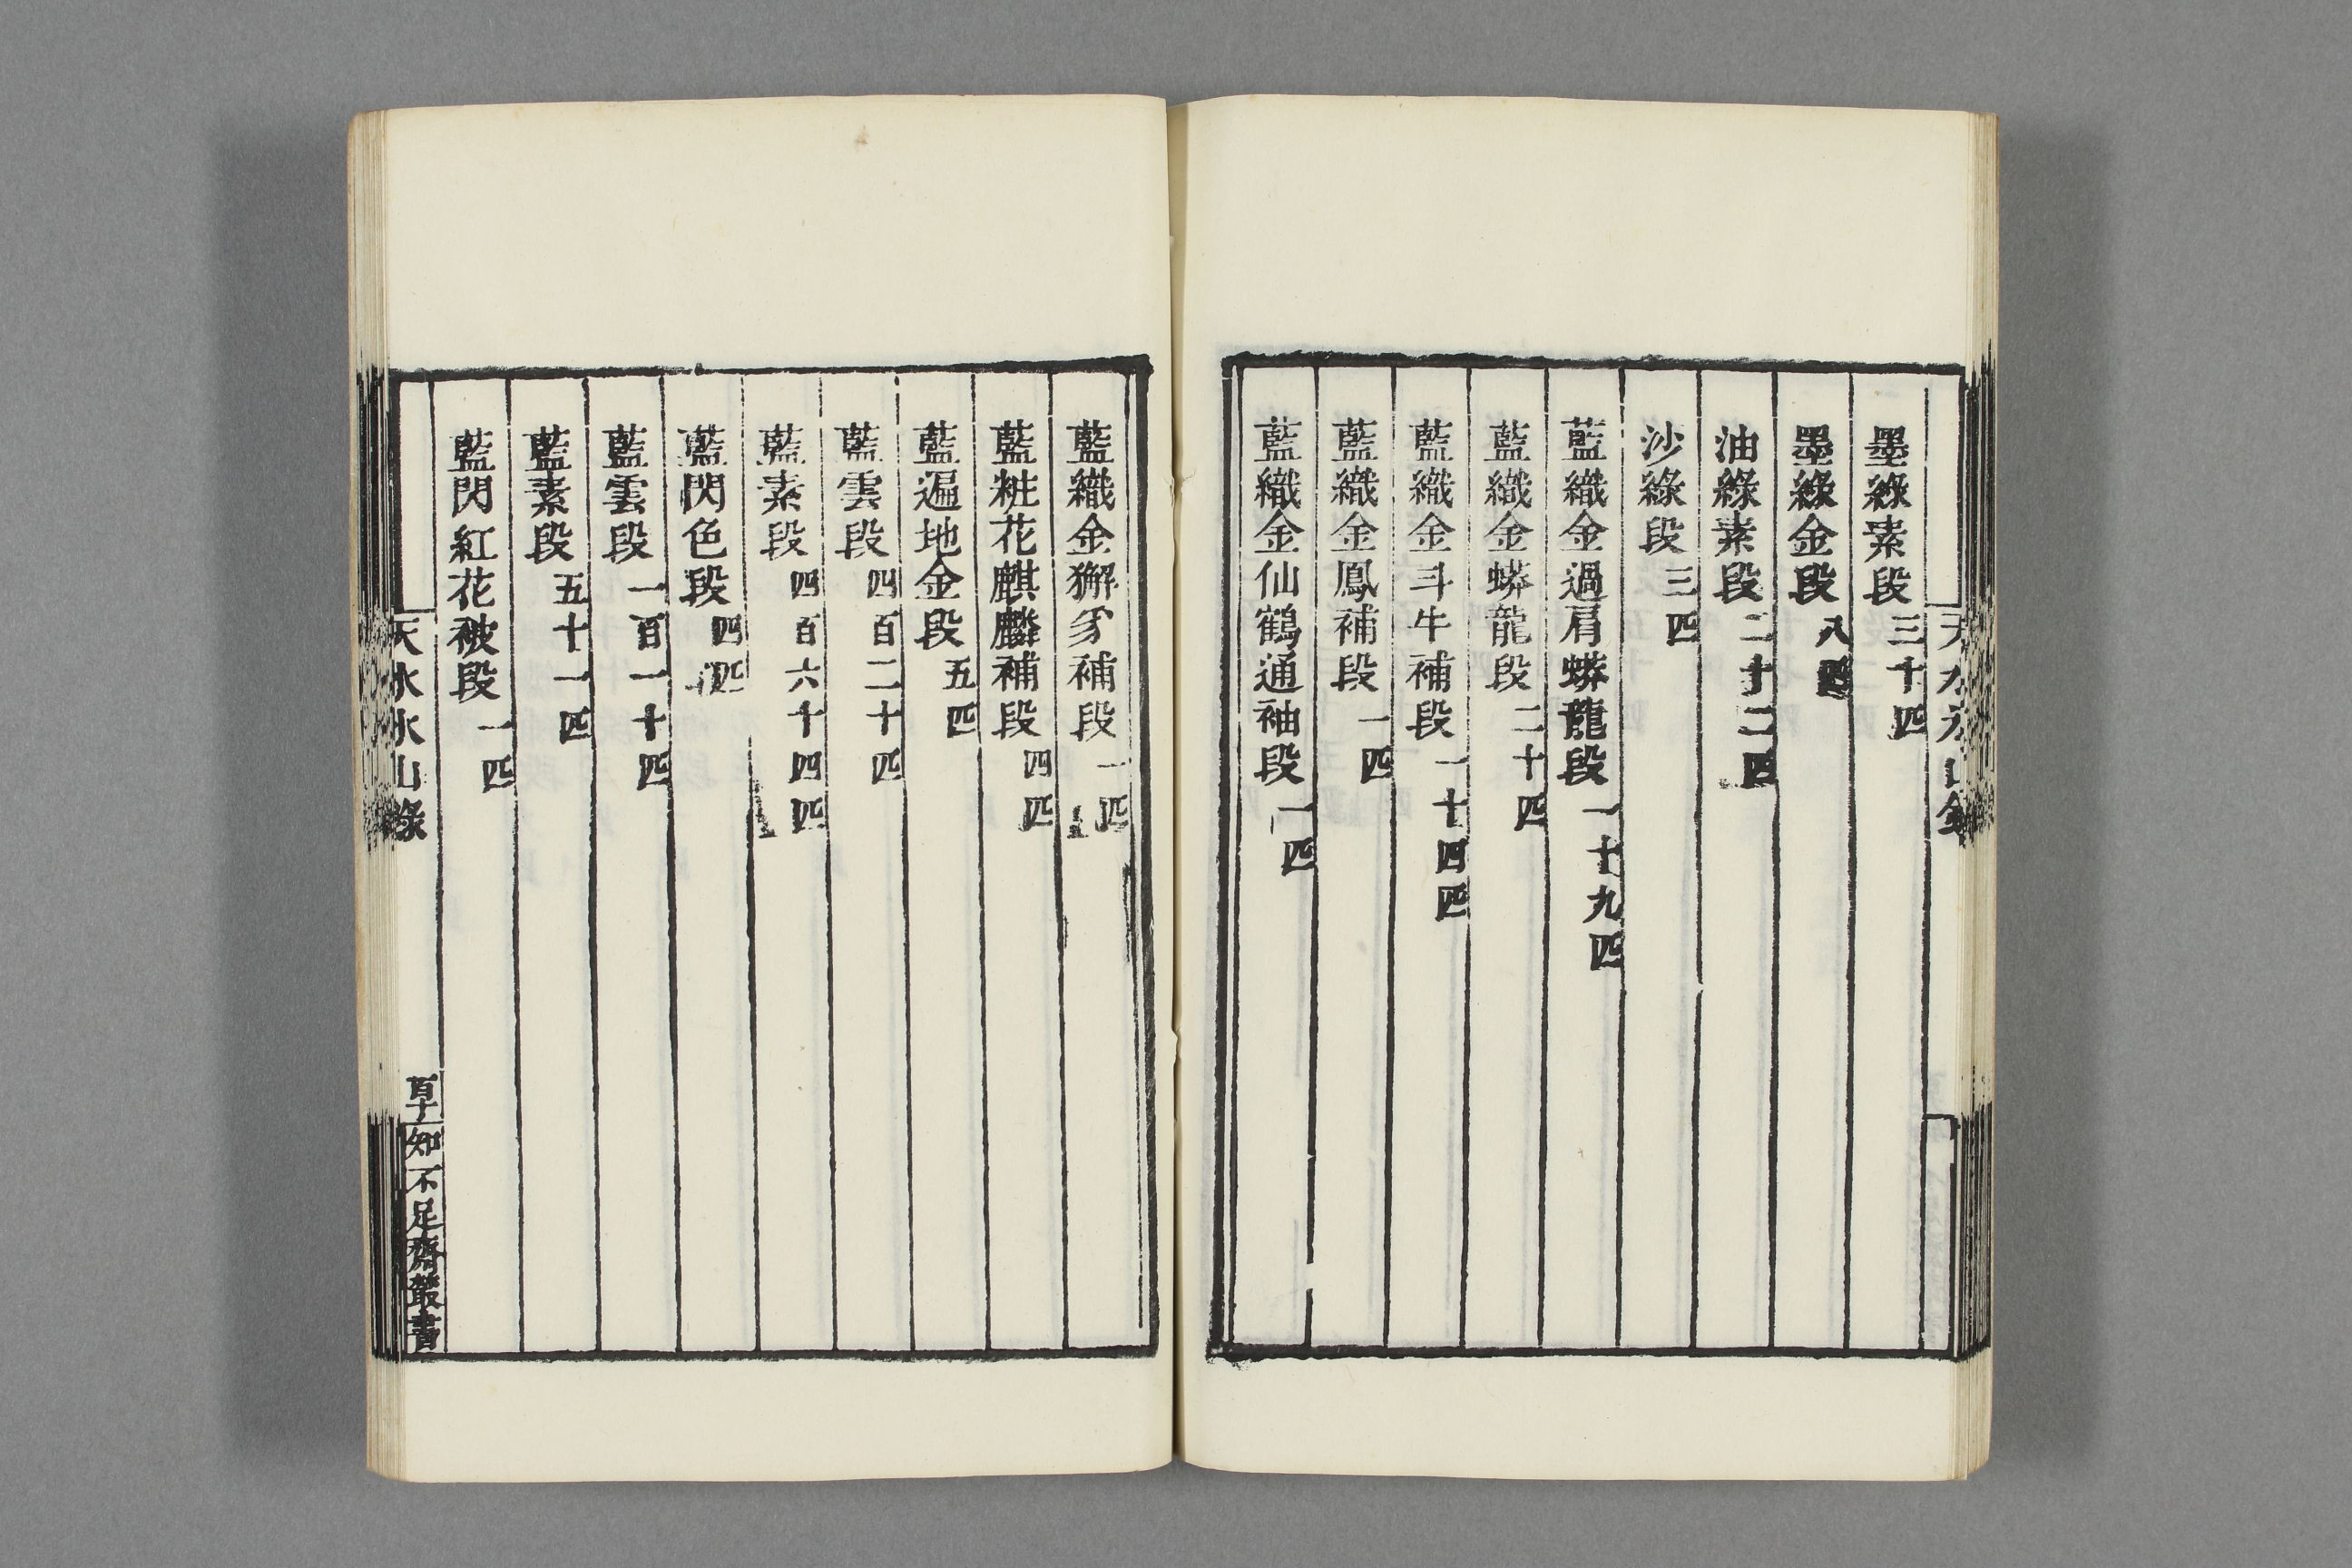 墨綠素段三十匹
墨綠金段八匹
油綠素段二十二匹
沙綠段三匹
藍織金過肩蟒龍段一十九匹
藍織金蟒龍段二十匹
藍織金斗牛補段一十四匹
藍織金鳳補段一匹
藍織金仙鶴通袖段一匹
藍織金獬豸補段一匹
藍粧花麒麟補段四匹
藍遍地金段五匹
藍雲段四百二十匹
藍素段四百六十四匹
藍閃色段四匹
藍雲段一百一十匹
藍素段五十一匹
藍閃紅花被段一匹
天水冰山錄
知不足齋叢書